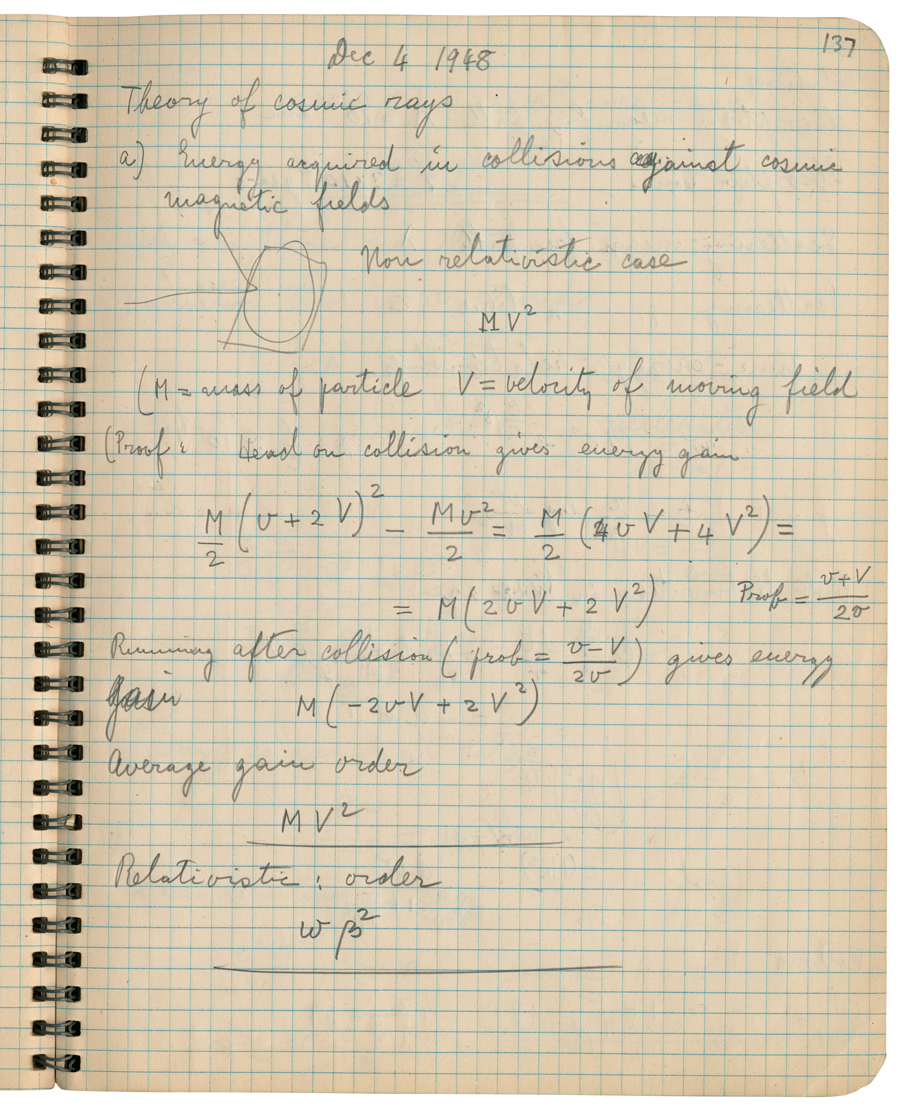 137
Dec 4 1948
Theory of cosmic rays
a) Energy acquired in collisions against cosmic
magnetic fields
Non relativistic case
MV²
(M = mass of particle V = velocity of moving field
(Proof: Head on collision gives energy gain
M/2 (v + 2V)² − Mv²/2 = M/2 (4vV + 4V²) =
= M(2vV + 2V²) Prob = v+V/2v
Running after collision (prob = v−V/2v) gives energy
gain M(−2vV + 2V²)
Average gain order
MV²
Relativistic: order
wβ²